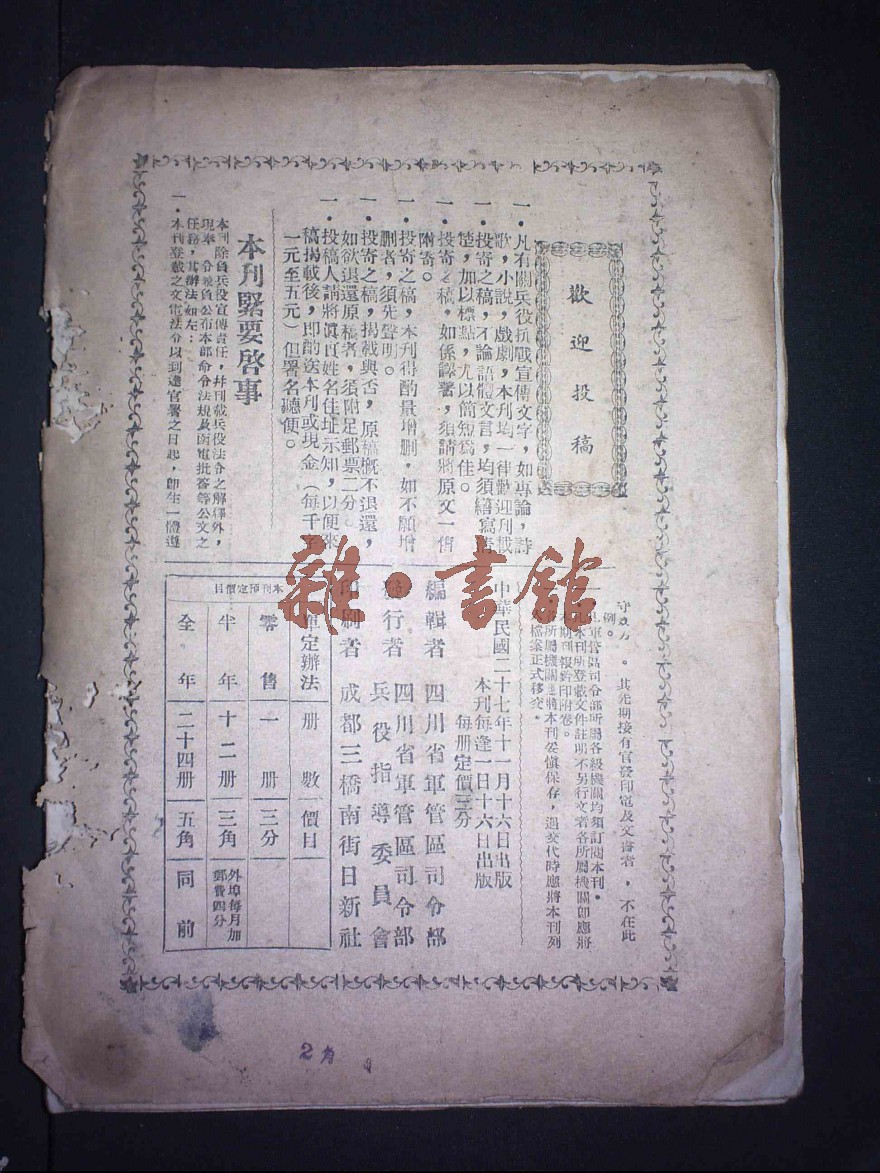 歡迎投稿
一・凡有關兵役抗戰宣傳文字，如專論，詩
歌，小說，戲劇，本刊均一律歡迎刊載
一・投寄之稿，不論語體文言，均須繕寫清
楚，加以標點，尤以簡短為佳。
一・投寄之稿，如係譯著，須請將原文一併
附寄。
一・投寄之稿，本刊得酌量增刪，如不願增
刪者，須先聲明。
一・投寄之稿，揭載與否，原稿概不退還，
如欲退還原稿者，須附足郵票二分。
一・投稿人請將真實姓名住址示知，以便來
稿揭載後，即酌送本刊或現金（每千字
一元至五元）但署名聽便。
本刊緊要啓事
本刊除負兵役宣傳責任，并刊載兵役法令之解釋外，
現奉 令兼負公布本部命令法規及函電批答等公文之
任務，其辦法如左：
一・本刊登載之文電法令以到達官署之日起，即生一體遵
守效力。其先期接有官發印電及文書者，不在此
例。
軍管區司令部所屬各級機關均須訂閱本刊。
本刊所登載文件註明不另行文者各所屬機關卽應將
期刊報剪印附卷。
所屬機關應將本刊妥慎保存，遇交代時應將本刊列
檔案正式移交。
中華民國二十七年十一月十六日出版
本刊每逢一日十六日出版
每册定價三分
編輯者 四川省軍管區司令部
發行者 四川省軍管區司令部
兵役指導委員會
印刷者 成都三橋南街日新社
本刊預定價目
訂定辦法 册數 價目
零售 一册 三分
半年 十二册 三角 外埠每月加郵費四分
全年 二十四册 五角 同前
雜・書館
2角